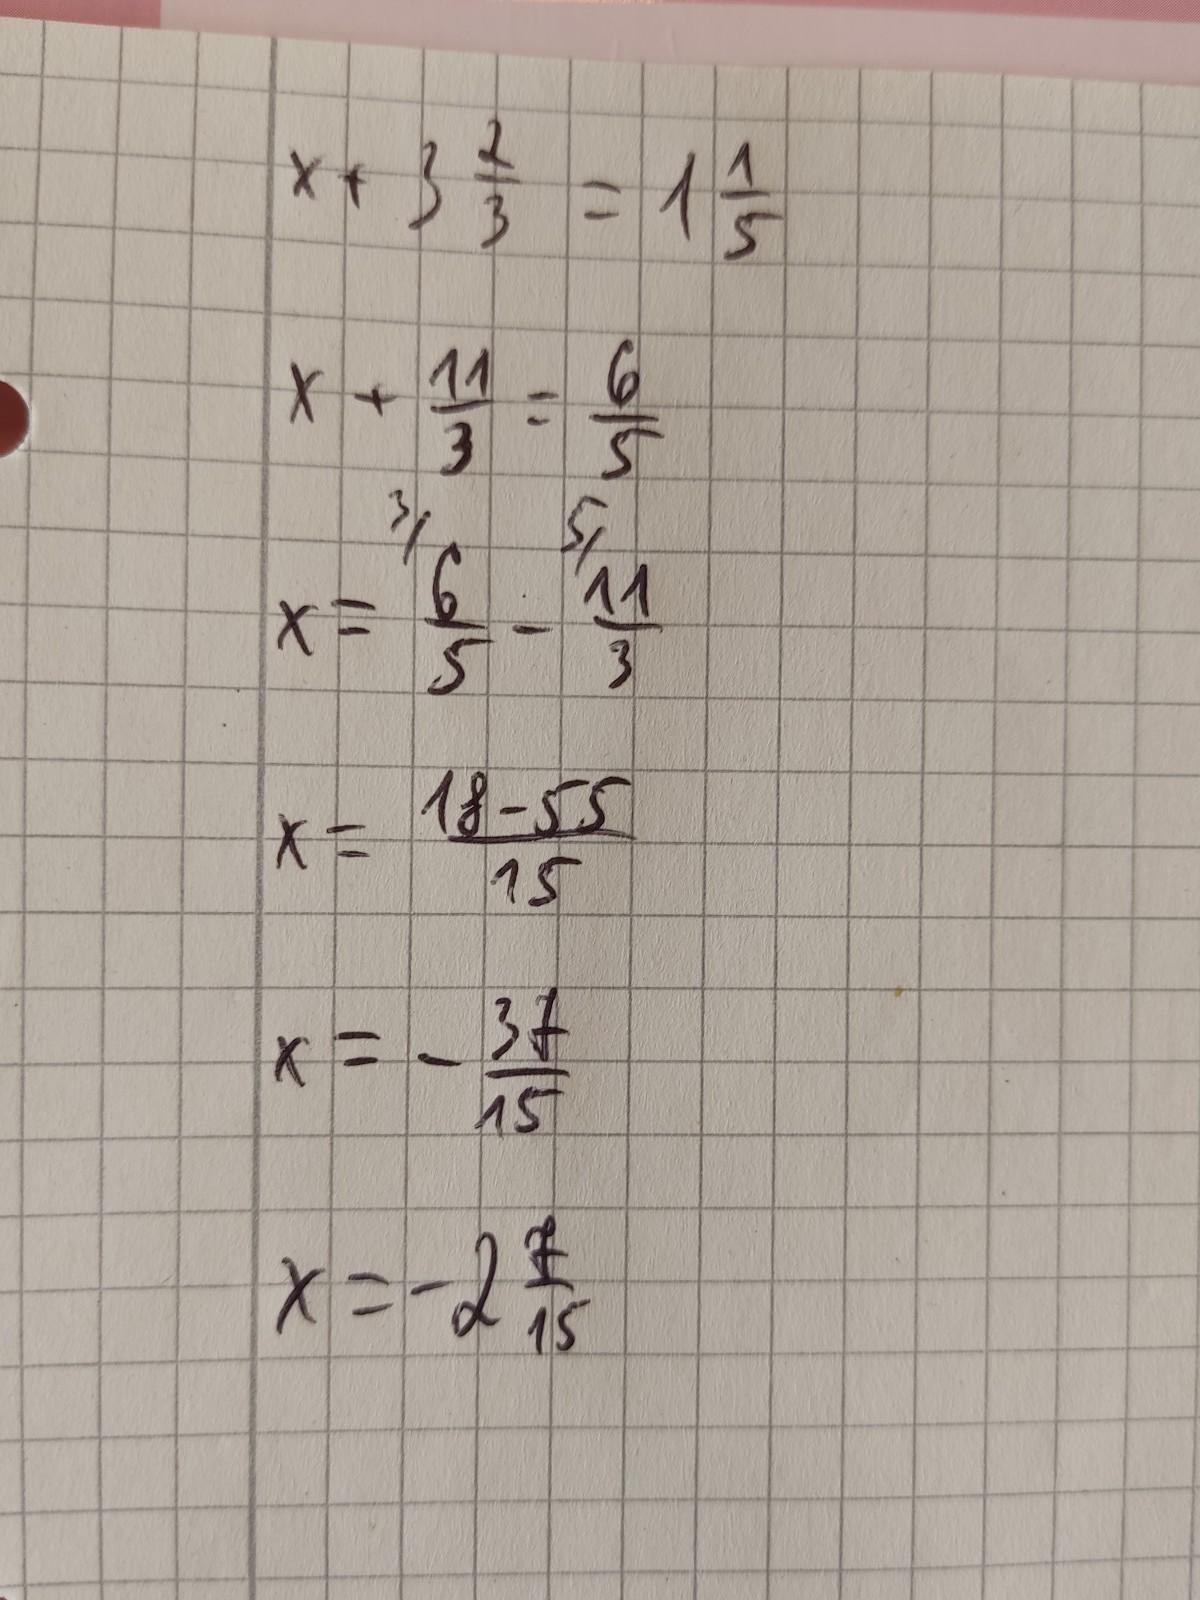 x + 3 2/3 = 1 1/5
x + 11/3 = 6/5
x = 3/ 6/5 - 5/ 11/3
x = 18-55/15
x = - 37/15
x = -2 7/15